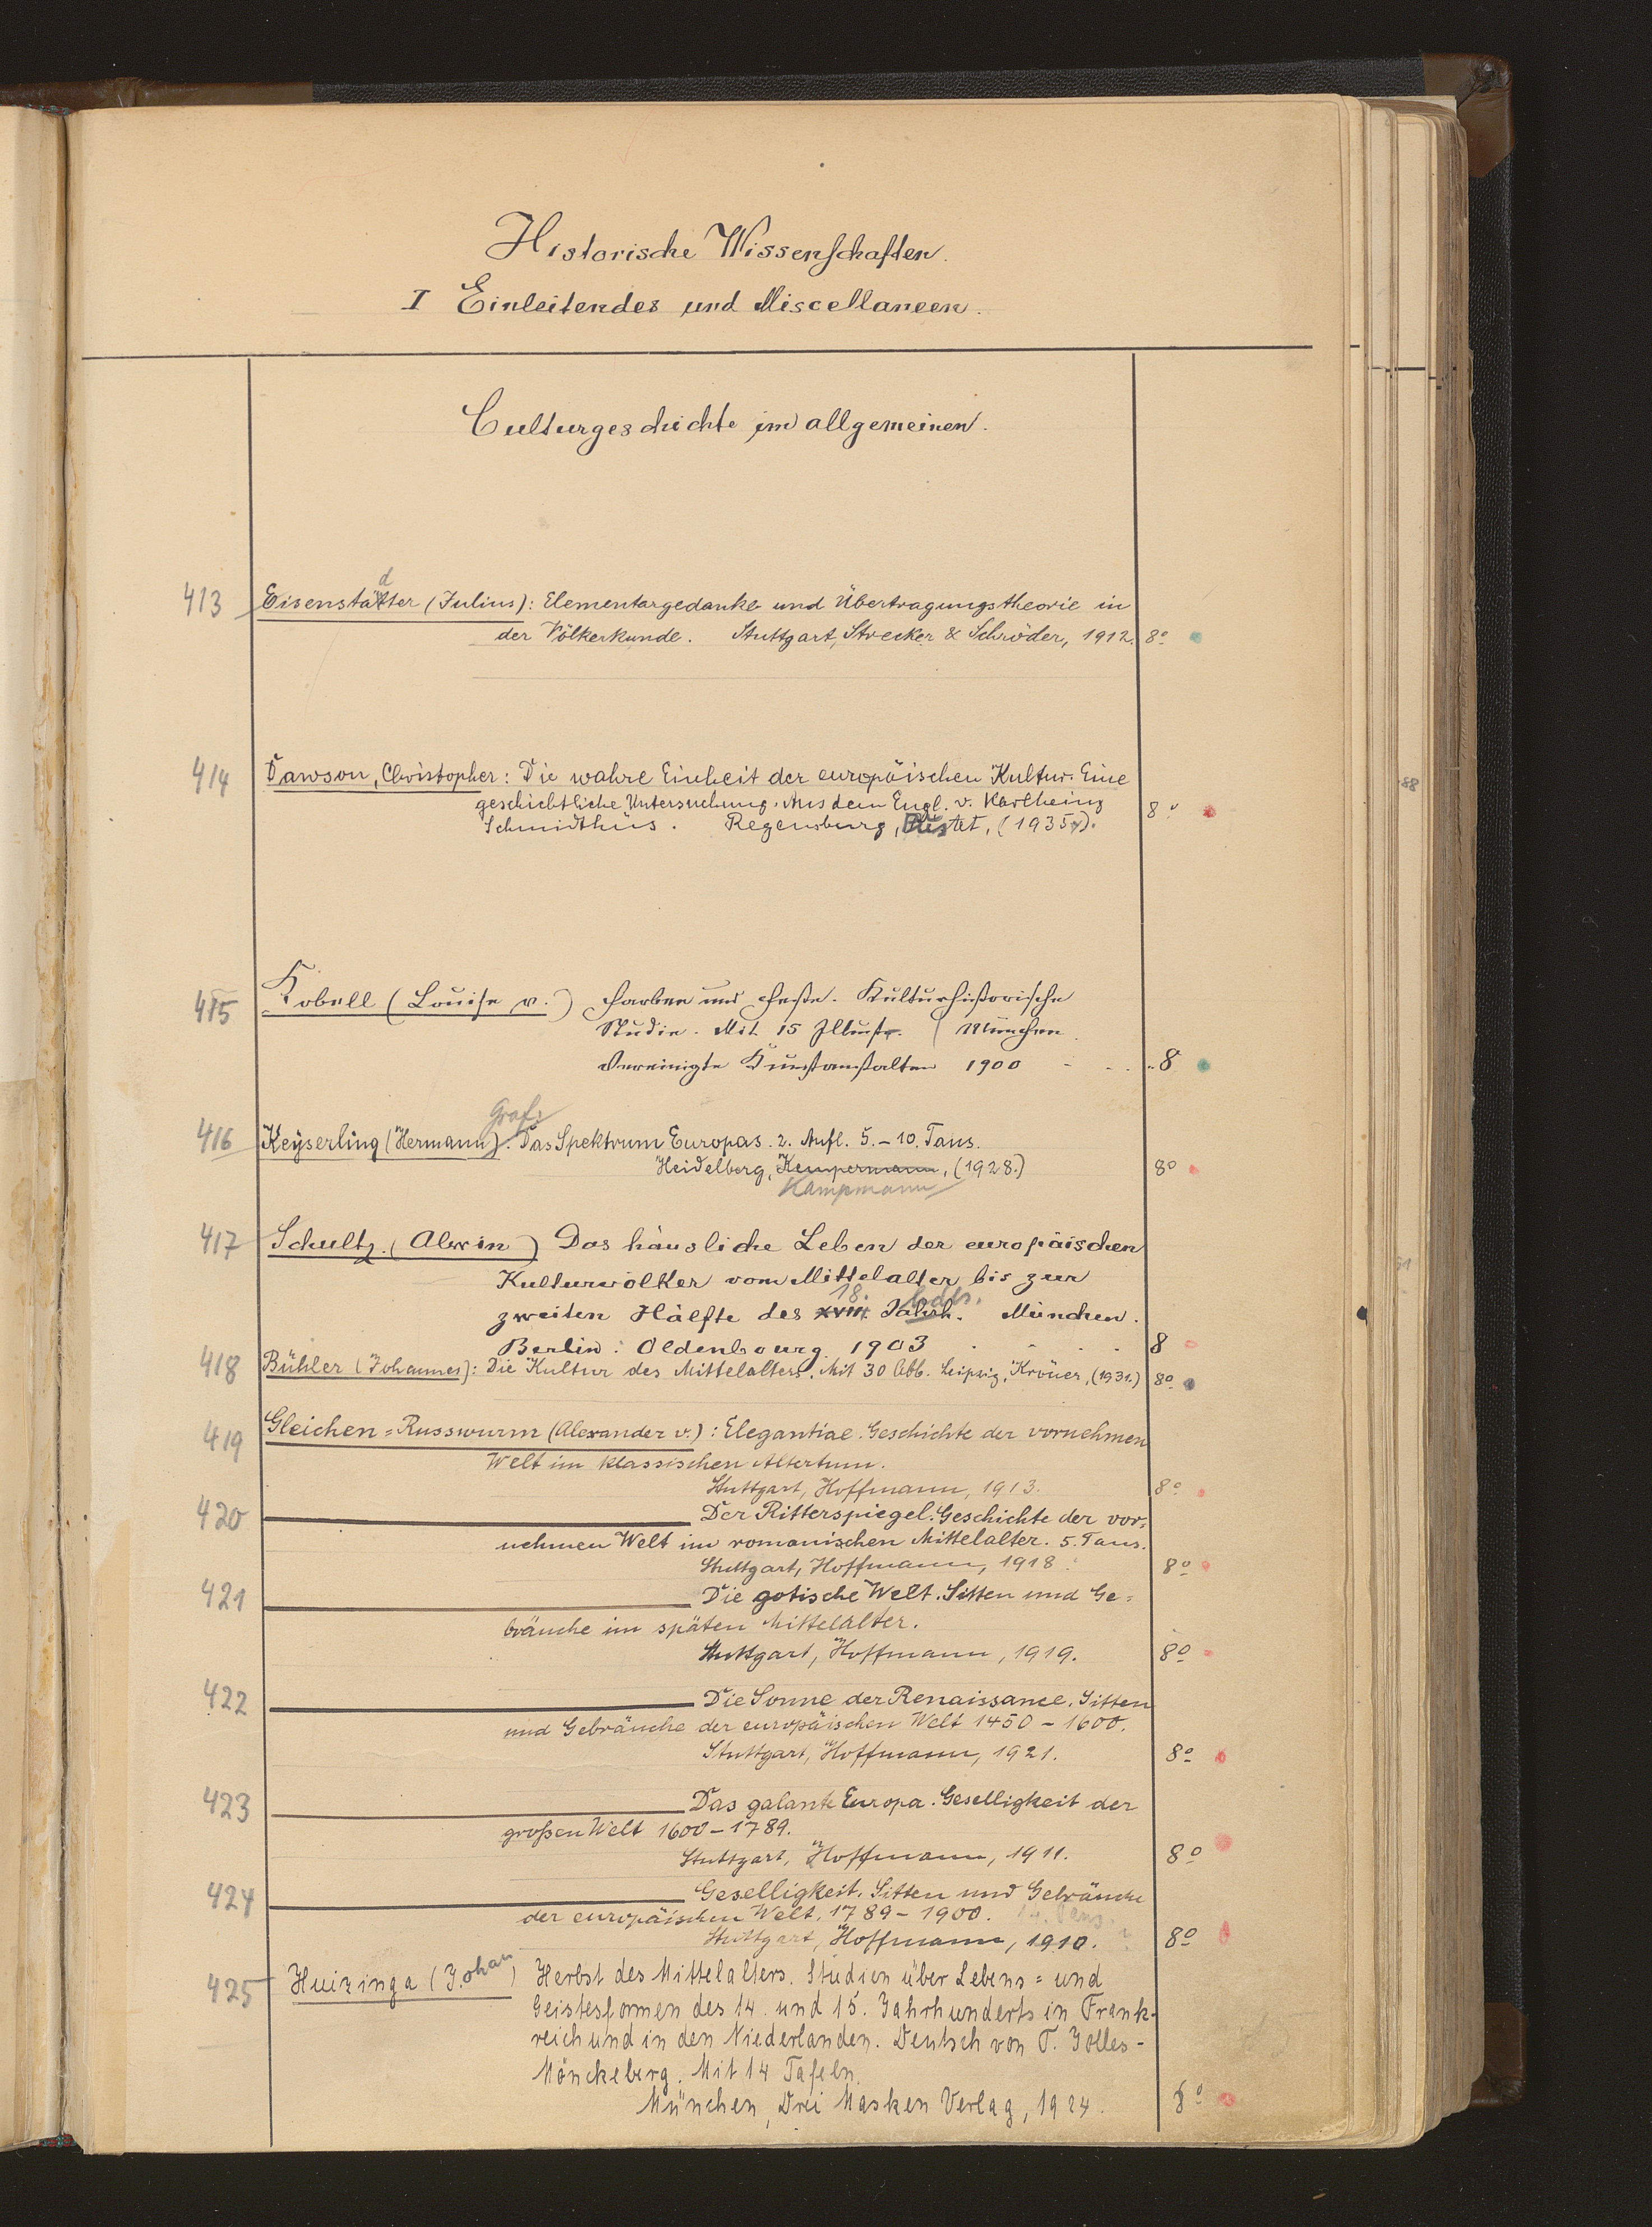 Historische Wissenschaften.
I Einleitendes und Miscellaneen.
Culturgeschichte im allgemeinen.
d
413 Eisenstätter (Julius): Elementargedanke und Übertragungstheorie in
der Völkerkunde. Stuttgart, Strecker & Schröder, 1912. 8°
414 Dawson, Christopher: Die wahre Einheit der europäischen Kultur. Eine
geschichtliche Untersuchung. Aus dem Engl. v. Karlheinz
Schmidthüs. Regensburg, (1935). 8°
415 Kobell (Louise v.) Farben und Feste. Kulturhistorische
Studie. Mit 15 Illustr. München
Vereinigte Kunstanstalten 1900 8
Graf:
416 Keyserling (Hermann). Das Spektrum Europas. 2. Aufl. 5.-10. Taus.
Heidelberg, Kempermann, (1928.) 8°
Kampmann
417 Schultz (Alwin) Das häusliche Leben der europäischen
Kulturvölker vom Mittelalter bis zur
18. hdts.
zweiten Hälfte des XVIII. Jahrh. München.
Berlin: Oldenbourg 1903 8
418 Bühler (Johannes): Die Kultur des Mittelalters. Mit 30 Abb. Leipzig, Kröner, (1931.) 8°
419 Gleichen=Russwurm (Alexander v.): Elegantiae. Geschichte der vornehmen
Welt im klassischen Altertum.
Stuttgart, Hoffmann, 1913. 8°
420 Der Ritterspiegel. Geschichte der vor=
nehmen Welt im romanischen Mittelalter. 5. Taus.
Stuttgart, Hoffmann, 1918. 8°
421 Die gotische Welt. Sitten und Ge=
bräuche im späten Mittelalter.
Stuttgart, Hoffmann, 1919. 8°
422 Die Sonne der Renaissance. Sitten
und Gebräuche der europäischen Welt 1450-1600.
Stuttgart, Hoffmann, 1921. 8°
423 Das galante Europa. Geselligkeit der
großen Welt 1600-1789.
Stuttgart, Hoffmann, 1911. 8°
424 Geselligkeit. Sitten und Gebräuche
der europäischen Welt. 1789-1900. 14. Taus.
Stuttgart, Hoffmann, 1910. 8°
425 Huizinga (Johan) Herbst des Mittelalters. Studien über Lebens= und
Geistesformen des 14. und 15. Jahrhunderts in Frank-
reich und in den Niederlanden. Deutsch von T. Jolles-
Mönckeberg. Mit 14 Tafeln.
München, Drei Masken Verlag, 1924. 8°
88
91